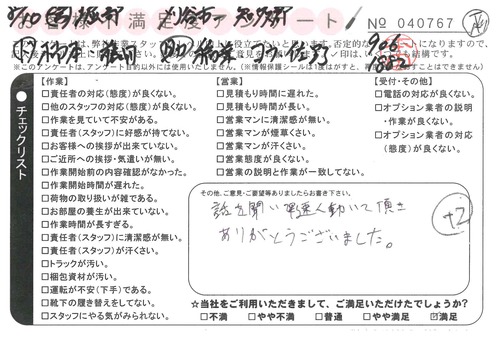 満足
ート
No 040767
※このアンケートは、アンケート目的以外には使用いたしません。(※情報保護シールは1度はがすと、再度貼り直すことはできません)
チェックリスト
【作業】
□責任者の対応(態度)が良くない。
□他のスタッフの対応(態度)が良くない。
□作業を見ていて不安がある。
□責任者(スタッフ)に好感が持てない。
□お客様への挨拶が出来ていない。
□ご近所への挨拶・気遣いが無い。
□作業開始前の内容確認がなかった。
□作業開始時間が遅れた。
□荷物の取り扱いが雑である。
□お部屋の養生が出来ていない。
□作業時間が長すぎる。
□責任者(スタッフ)に清潔感が無い。
□責任者(スタッフ)が汗くさい。
□トラックが汚い。
□梱包資材が汚い。
□運転が不安(下手)である。
□靴下の履き替えをしてない。
□スタッフにやる気がみられない。
【営業】
□見積もり時間に遅れた。
□見積もり時間が長い。
□営業マンに清潔感が無い。
□営業マンが煙草くさい。
□営業マンが汗くさい。
□営業態度が良くない。
□営業の説明と作業が一致してない。
【受付・その他】
□電話の対応が良くない。
□オプション業者の説明
・作業が良くない。
□オプション業者の対応
(態度)が良くない。
その他、ご意見・ご要望等ありましたらお書き下さい。
話を聞い早速く動いて頂き
ありがとうございました。
+2
☆当社をご利用いただきまして、ご満足いただけたでしょうか?
□不満 □やや不満 □普通 □やや満足 ☑満足